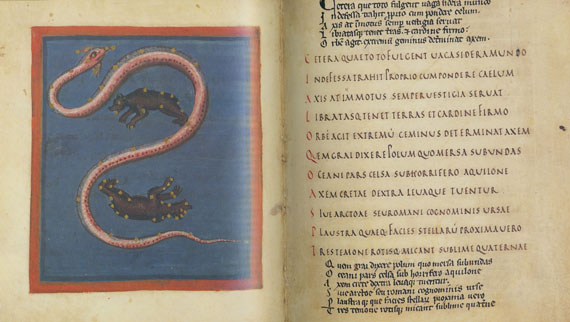 Cetera que toto fulgent uaga mundo
Indefessa trahit cum pondere celum.
Axis at semper uestigia seruat
tenet terras cardine firmo:
Orbe agit. geminus axem.
CETERA QUAE TOTO FULGENT UAGA SIDERA MUNDO
INDEFESSA TRAHIT PROPRIO CUM PONDERE CAELUM
AXIS AT IMMOTUS SEMPER UESTIGIA SERUAT
LIBRATASQ TENET TERRAS ET CARDINE FIRMO
ORBE AGIT EXTREMU GEMINUS DETERMINAT AXEM
QEM GRAI DIXERE POLUM QUO MERSA SUB UNDAS
OCEANI PARS CELSA SUB HORRIFERO AQUILONE
AXEM CRETAE DEXTRA LEUAQUE TUENTUR
SIUE ARCTOE SEU ROMANI COGNOMINIS URSAE
PLAUSTRA QUAEQ FACIES STELLARU PROXIMA UERO
TRES TEMONE ROTISQ MICANT SUBLIME QUATERNAE
Quem grai dixere polum quo mersa subundas
Oceani pars celsa sub aquilone
Axem crete dextra leuaque tuentur.
Siue arctoe seu romani cognominis urse
Plaustra que facies stellaru proxima uero
Tres temone rotisq micant sublime quaterne